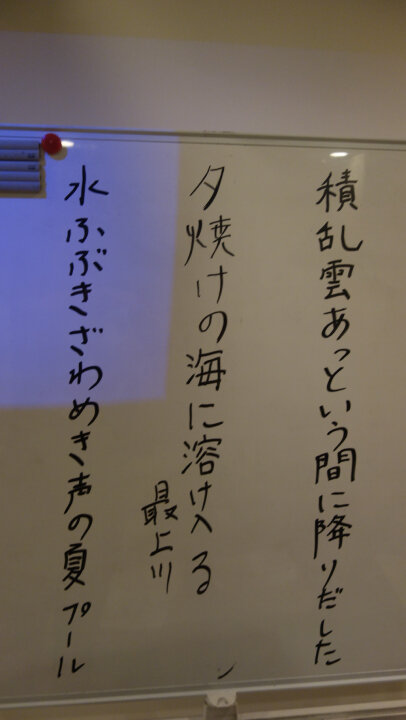 積乱雲あっという間に降りだした
夕焼けの海に溶け入る
最上川
水ふぶきざわめき声の夏プール